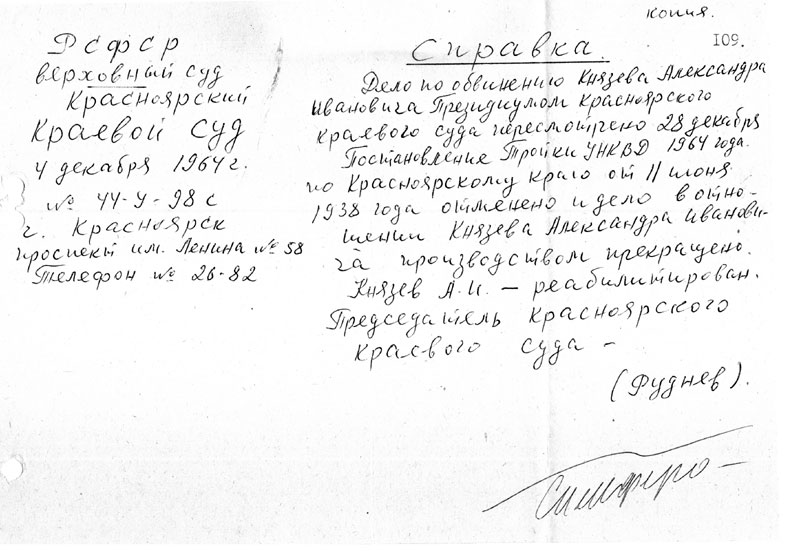 копия.
109.
РСФСР
верховный суд
Красноярский
Краевой суд
4 декабря 1964 г.
№ 44-У-98 с
г. Красноярск
проспект им. Ленина № 58
Телефон № 26-82
Справка.
Дело по обвинению Князева Александра
Ивановича Президиумом Красноярского
краевого суда пересмотрено 28 декабря
1964 года.
Постановление Тройки УНКВД
по Красноярскому краю от 11 июня
1938 года отменено и дело в отно-
шении Князева Александра Иванови-
ча производством прекращено.
Князев А.И. – реабилитирован.
Председатель Красноярского
краевого суда –
(Руднев).